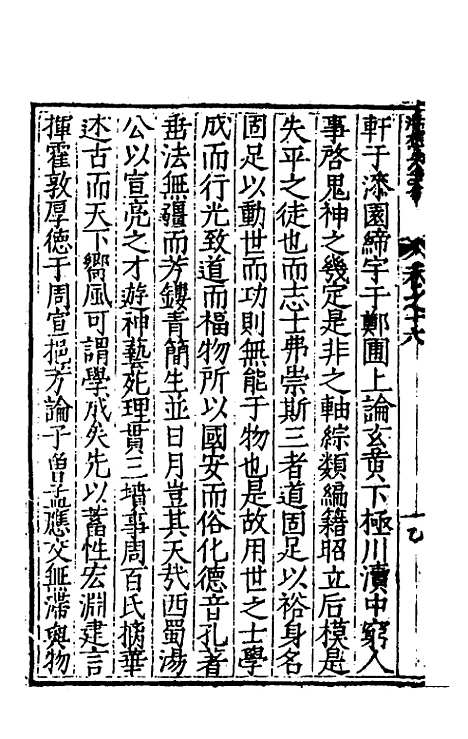 軒于漆園締宇于鄭圃上論玄黄下極川瀆中窮人
事啓鬼神之幾定是非之軸綜類編籍昭立后模是
失平之徒也而志士弗崇斯三者道固足以裕身名
固足以動世而功則無能于物也是故用世之士學
成而行光致道而福物所以國安而俗化德音孔著
垂法無疆而芳鏤青簡生並日月豈其天㢤西蜀湯
公以宣亮之才遊神藝苑理貫三墳事周百氏摛華
述古而天下嚮風可謂學成矣先以蓄性宏淵建言
揮霍敦厚德于周宣挹芳論于曽孟應交無滯與物
卷之十六